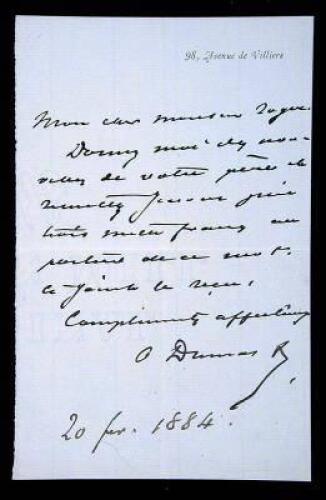 98, Avenue de Villiers
Mon cher monsieur
Donnez moi des nou-
velles de votre père et
remettez je vous prie
trois mille francs au
porteur de ce mot.
Ci-joint le reçu.
Compliments affectueux
A Dumas f.
20 fev. 1884.